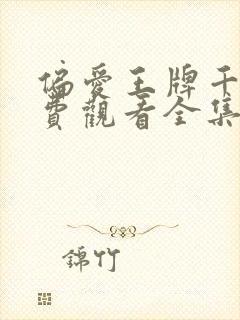 偏愛王牌千
費觀看全集
錦竹